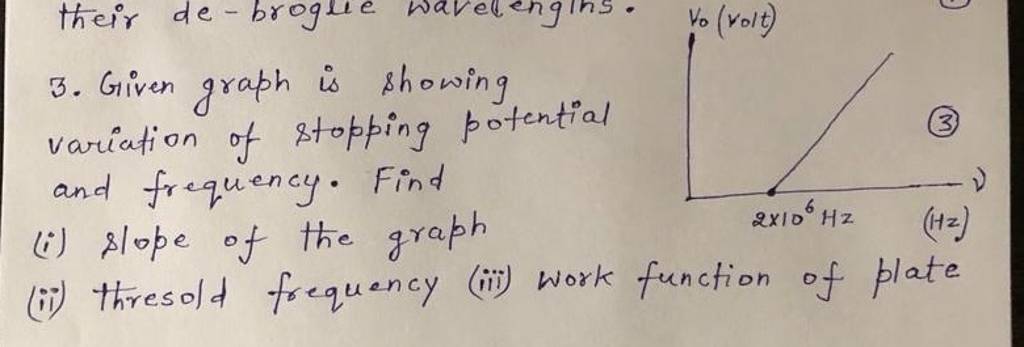 their de-broglie wavelengths.
3. Given graph is showing
variation of stopping potential
and frequency. Find
(i) slope of the graph
(ii) thresold frequency (iii) work function of plate
V₀ (volt)
③
ν
2x10⁶ Hz
(Hz)